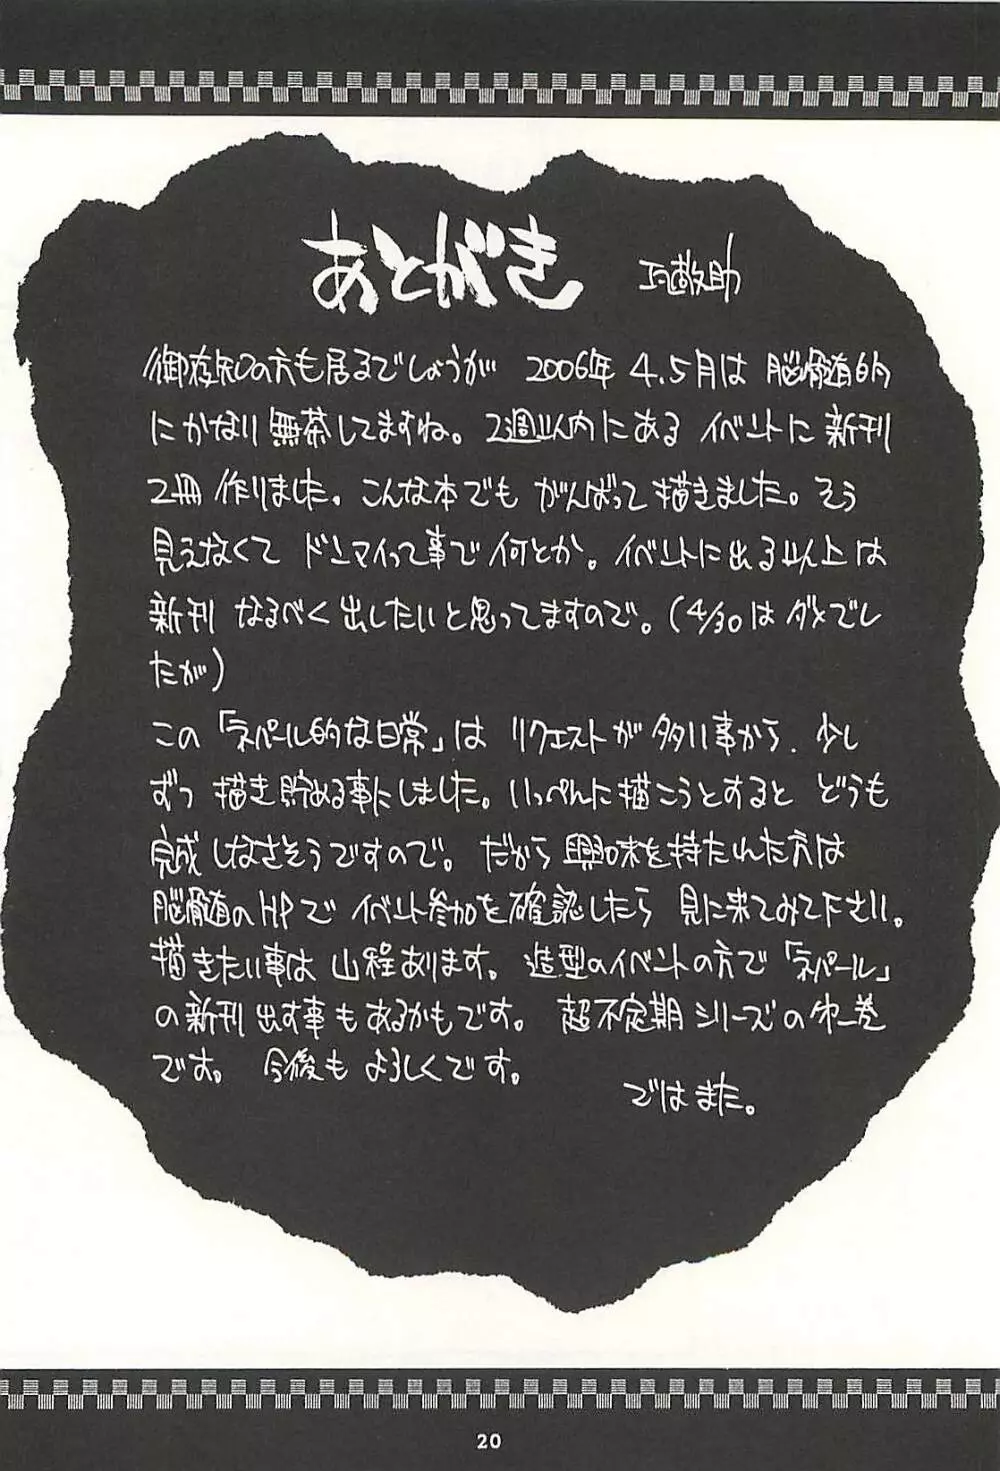 あとがき 巧敬助
御存知の方も居るでしょうが 2006年 4.5月は 脳骨髄的
にかなり無茶してますね。2週以内にある イベントに 新刊
2冊 作りました。こんな本でも がんばって描きました。そう
見えなくて ドンマイって事で 何とか。イベントに出る以上は
新刊 なるべく 出したいと思ってますので。(4/30は ダメでし
たが)
この「ネパール的な日常」は リクエストが 多い事から、少し
ずつ 描き貯める事にしました。いっぺんに描こうとすると どうも
完成しなさそうですので。だから 興味を持たれた方は
脳骨髄のHPで イベント参加を確認したら 見に来てみて下さい。
描きたい事は 山程あります。造型のイベントの方で「ネパール」
の新刊 出す事もあるかもです。 超不定期シリーズの第一巻
です。 今後も よろしくです。
ではまた。
20